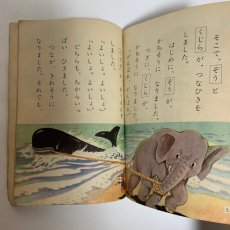 そこで、ぞうと
くじらが、つなひきを
はじめに、ぞうが、
かちそうに なりました。
つぎに、くじらが、
かちそうに なりました。
「よいしょ、よいしょ。」
「よいしょ、よいしょ。」
どちらも、ちからいっ
ぱい ひきました。
つなが、きれそうに
なりました。それでも、